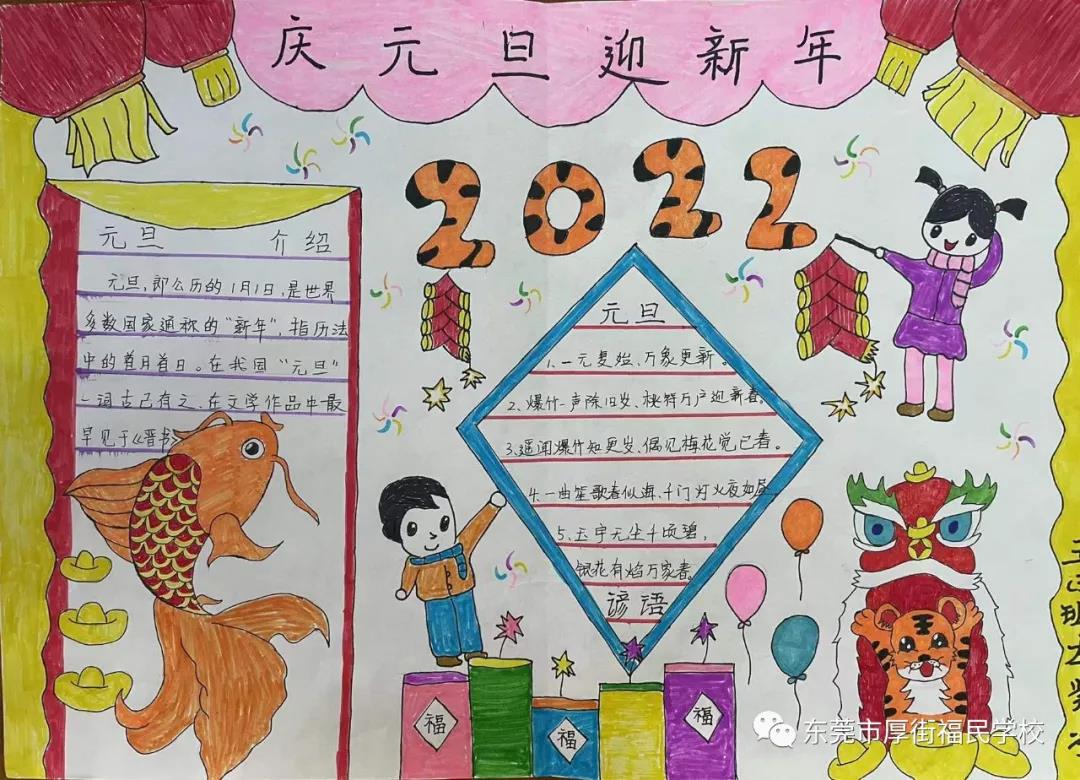 庆元旦迎新年
2022
元旦 介绍
元旦,即公历的1月1日,是世界
多数国家通称的“新年”,指历法
中的首月首日。在我国“元旦”
一词古已有之、在文学作品中最
早见于《晋书》
元旦
1、一元复始、万象更新。
2、爆竹一声除旧岁、桃符万户迎新春。
3、遥闻爆竹知更岁、偶见梅花觉已春。
4、一曲笙歌春似海、千门灯火夜如昼。
5、玉宇无尘千顷碧,
银花有焰万家春。
谚语
福
福
福
三
班
东莞市厚街福民学校